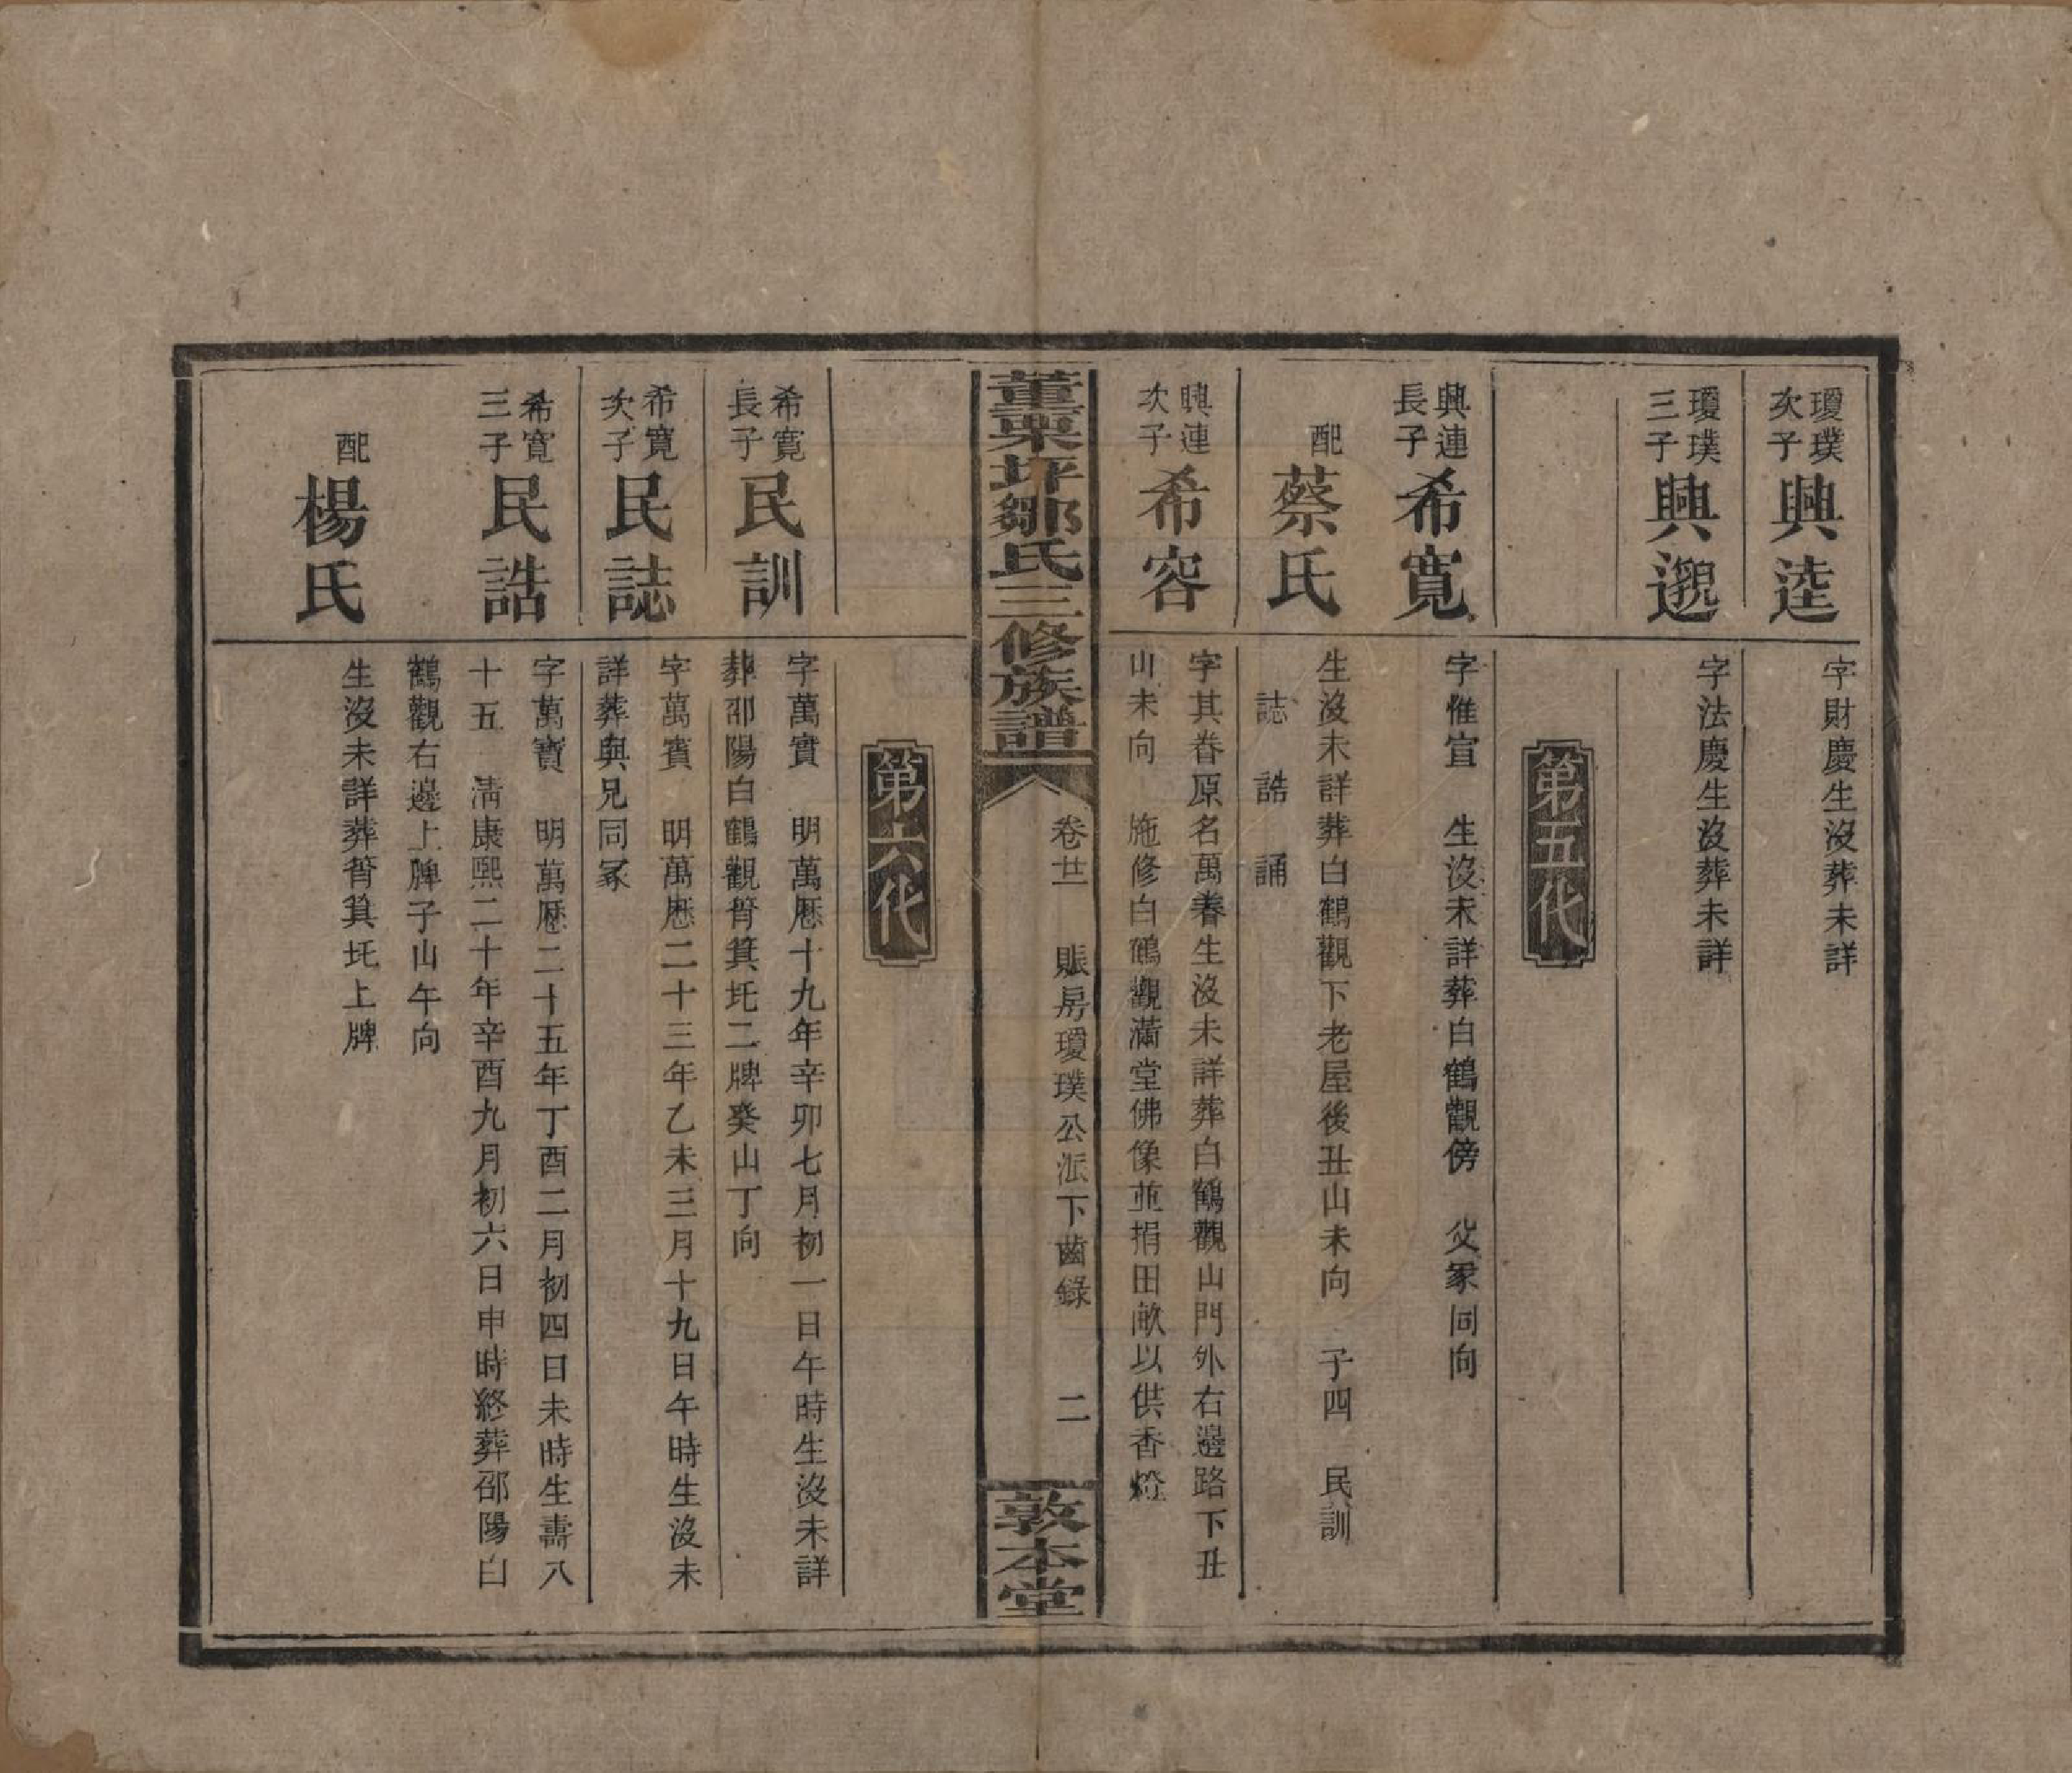 瓊璞
次子
興逵
字財慶生沒葬未詳
瓊璞
三子
興邈
字法慶生沒葬未詳
第五代
興連
長子
希寬
字惟宣　生沒未詳葬白鶴觀傍　父冢同向
配
蔡氏
生沒未詳葬白鶴觀下老屋後丑山未向　子四　民訓
誌　誥　誦
興連
次子
希容
字其春原名萬春生沒未詳葬白鶴觀山門外右邊路下丑
山未向　施修白鶴觀滿堂佛像並捐田畝以供香燈
董栗坪鄒氏三修族譜
卷廿　賬房瓊璞公派下齒錄　二
敦本堂
第六代
希寬
長子
民訓
字萬實　明萬歷十九年辛卯七月初一日午時生沒未詳
葬邵陽白鶴觀筲箕坵二牌癸山丁向
希寬
次子
民誌
字萬賓　明萬歷二十三年乙未三月十九日午時生沒未
詳葬與兄同冢
希寬
三子
民誥
字萬寶　明萬歷二十五年丁酉二月初四日未時生壽八
十五　清康熙二十年辛酉九月初六日申時終葬邵陽白
鶴觀右邊上牌子山午向
配
楊氏
生沒未詳葬筲箕坵上牌